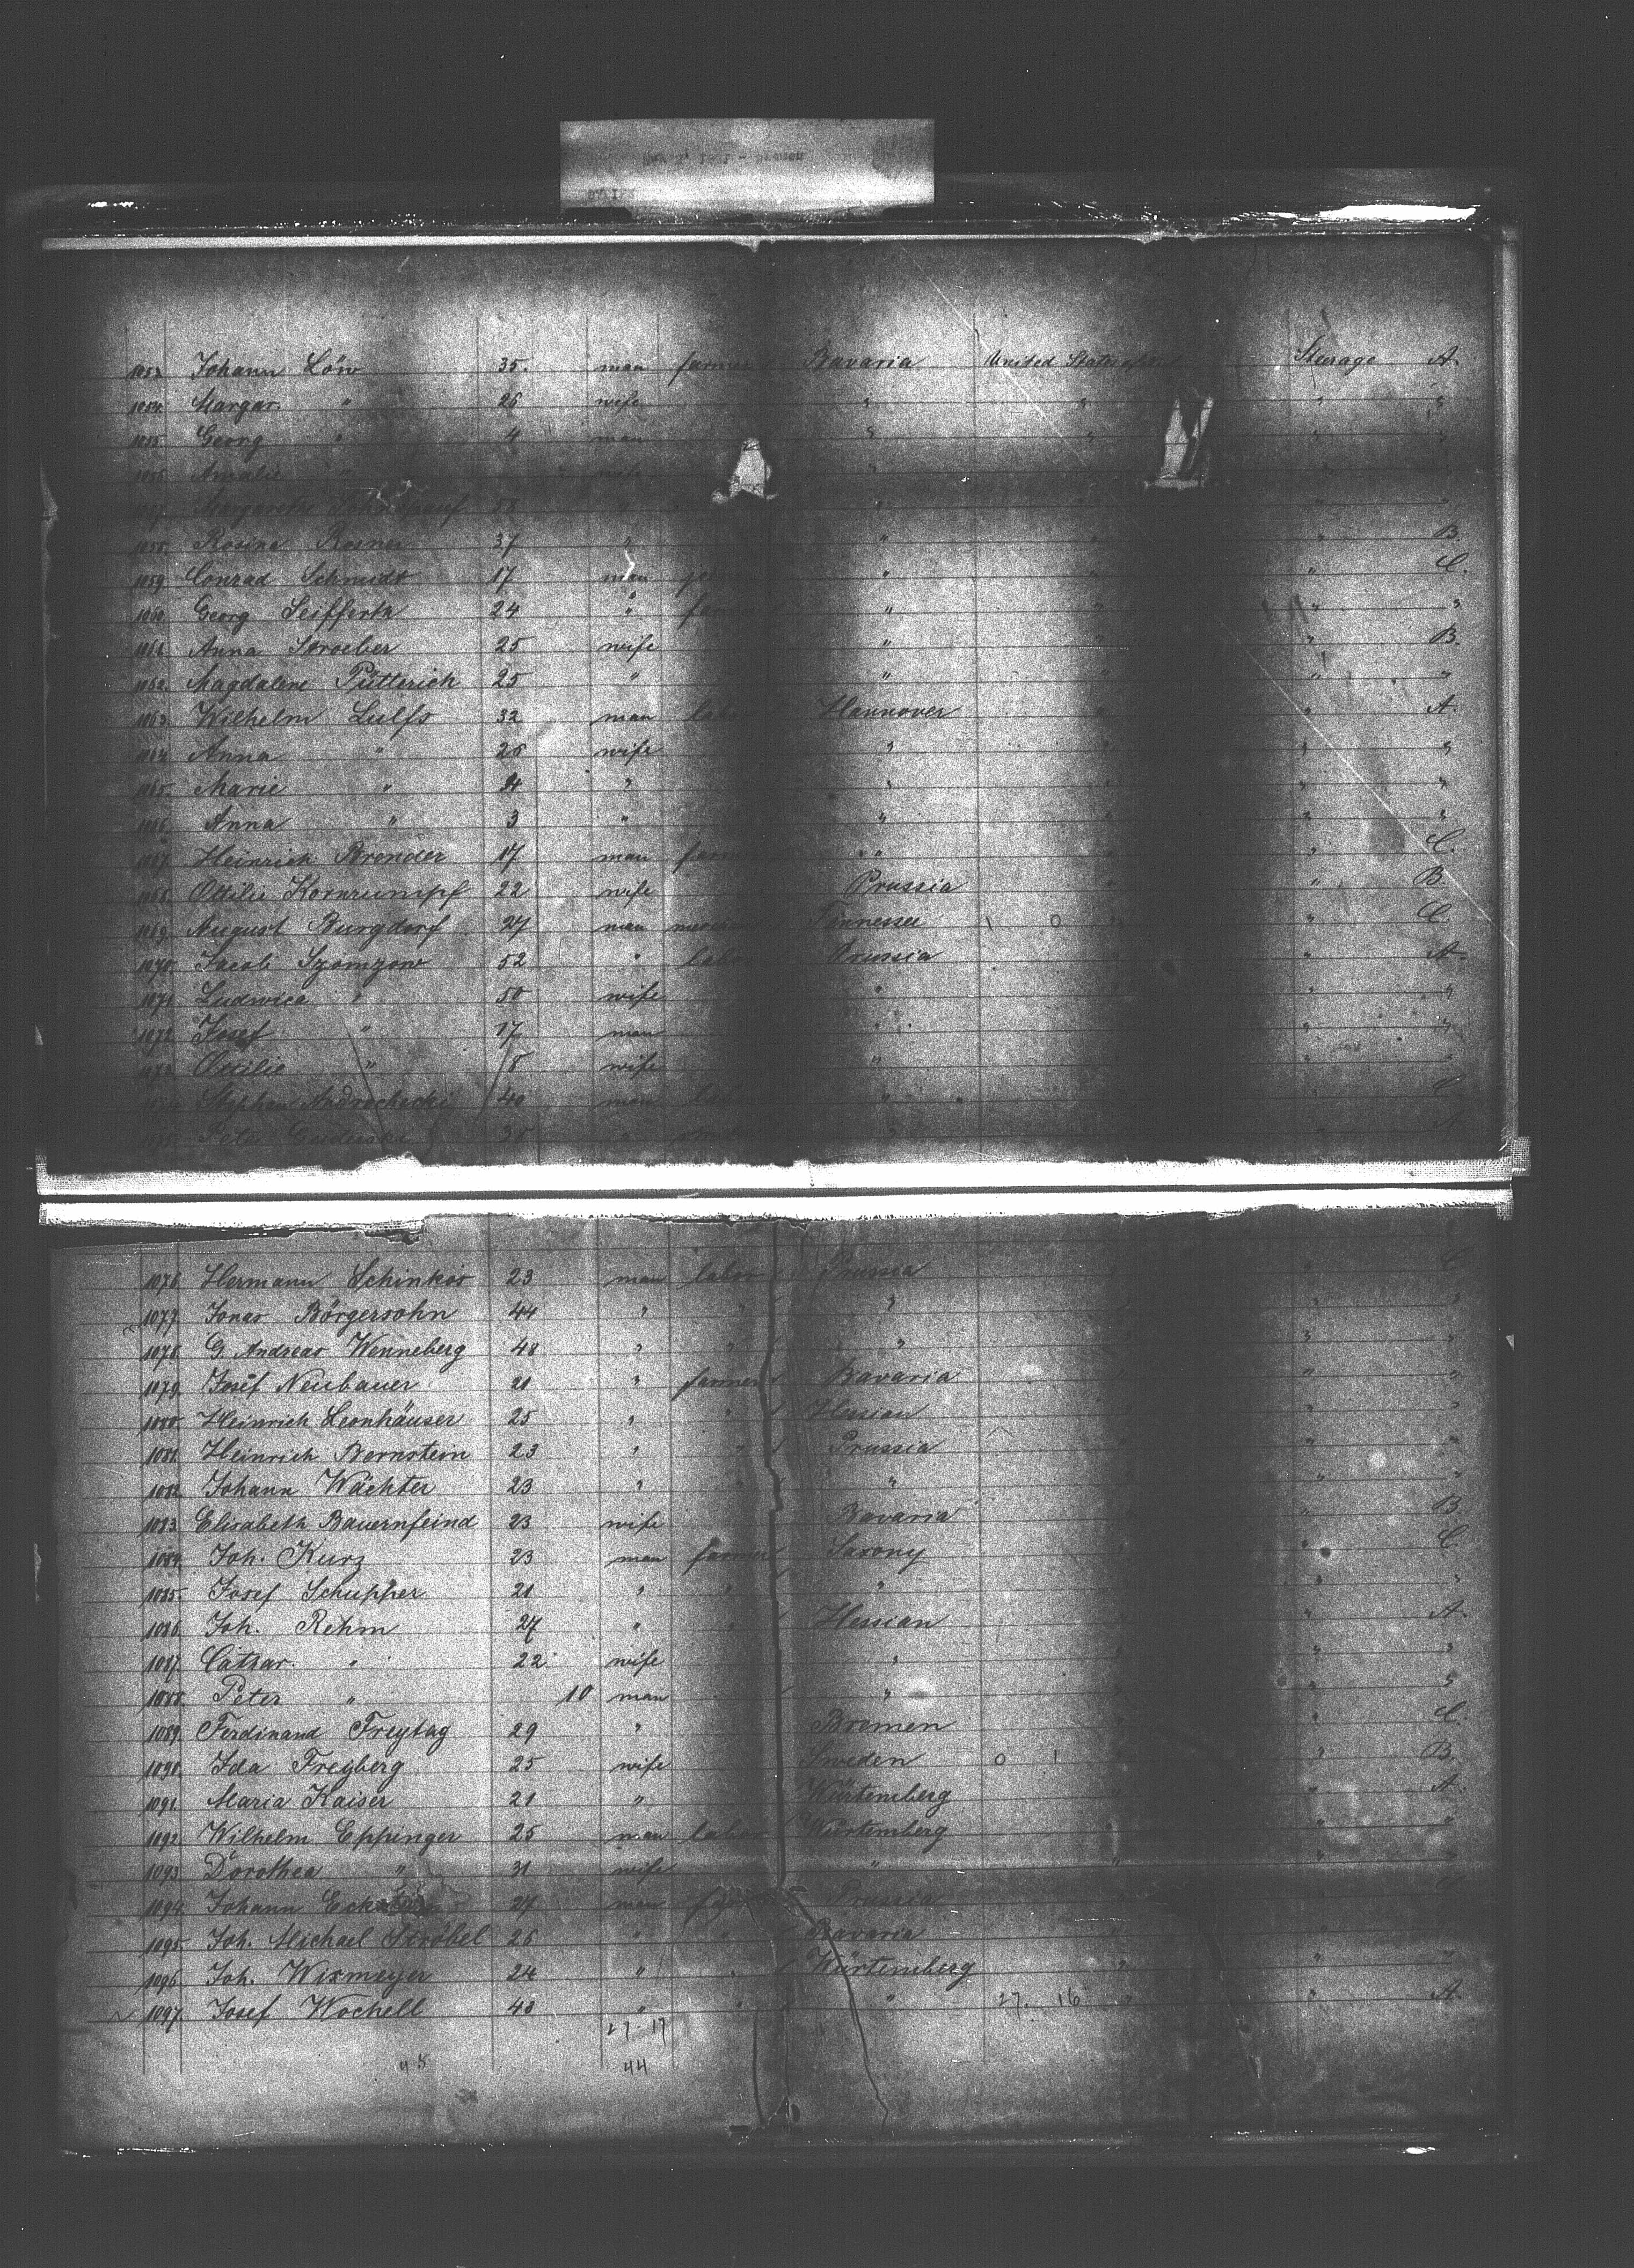 1053. Johann Löw 35. man farmer Bavaria United States of Steerage A.
1054. Margar. " 26 wife " " " "
1055. Georg " 4 man " " " "
1056. Amalie " wife " "
Margarethe 58 " " " "
1058. Rosina Rosner 37 " " " " B.
1059. Conrad Schmidt 17 man " " " C.
1060. Georg Seifferth 24 " farmer " " " "
1061. Anna Stroeber 25 wife " " " B.
1062. Magdalene Pütterich 25 " " " " "
1063. Wilhelm Lulfs 32 man labor Hannover " " A.
1064. Anna " 26 wife " " " "
1065. Marie " 4 " " " " "
1066. Anna " 3 " " " " "
1067. Heinrich Brender 17 man farmer " " " C.
1068. Ottilie Kornrumpf 22 wife Prussia " " B.
1069. August Burgdorf 27 man Tennessee 1 0 " " C.
1070. Jacob Szomzow 52 " labor Prussia " " A.
1071. Ludwica " 50 wife " " " "
1072. Josef " 17 man " " " "
1073. Ottilie " 8 wife " " "
1074. Stephan Androchecki 40 man labor " " C.
1075. Peter 38 " " " A.
1076. Hermann Schinkös 23 man labor Prussia " " C
1077. Jonas Börgersohn 44 " " " " " "
1078. G. Andreas Wenneberg 48 " " " " " "
1079. Josef Neubauer 21 " farmer Bavaria " " "
1080. Heinrich Leonhäuser 25 " " Hessian " " "
1081. Heinrich Bornstein 23 " " Prussia " " "
1082. Johann Wächter 23 " " " " " "
1083. Elisabeth Bauernfeind 23 wife Bavaria " " B
1084. Joh. Kurz 23 man farmer Saxony " " C
1085. Josef Schupper 21 " " " " " "
1086. Joh. Rehm 27 " " Hessian " " A.
1087. Cathar. " 22 wife " " " "
1088. Peter " 10 man " " " "
1089. Ferdinand Freytag 29 " Bremen " " C.
1090. Ida Freyberg 25 wife Sweden 0 1 " " B.
1091. Maria Kaiser 21 " Würtemberg " " A.
1092. Wilhelm Eppinger 25 man labor Würtemberg " " "
1093. Dorothea " 31 wife " " " "
1094. Johann 27 man Prussia " C
1095. Joh. Michael Ströbel 26 " " Bavaria " " "
1096. Joh. Wixmeyer 24 " " Würtemberg " " "
1097. Josef Wochell 43 " " " 27. 16 " " A.
27 17
45 44